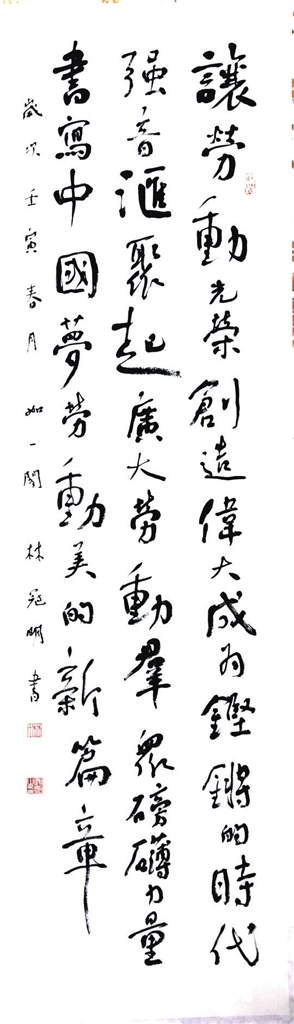 讓勞動光榮創造偉大成為鏗鏘的時代
强音匯聚起廣大勞動羣衆磅礴力量
書寫中國夢勞動美的新篇章
歲次壬寅春月 如一閣 林冠明 書